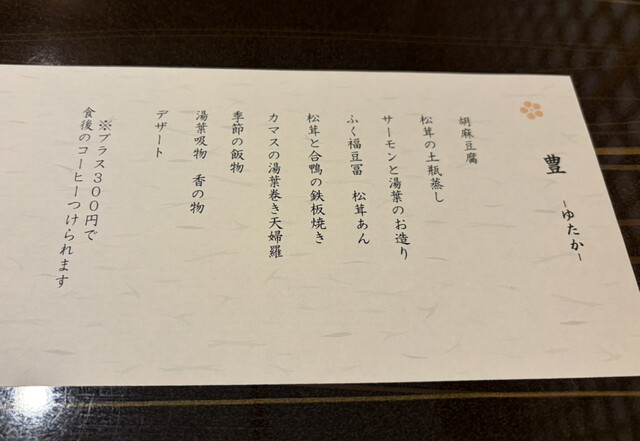 豊 -ゆたか-
胡麻豆腐
松茸の土瓶蒸し
サーモンと湯葉のお造り
ふく福豆冨 松茸あん
松茸と合鴨の鉄板焼き
カマスの湯葉巻き天婦羅
季節の飯物
湯葉吸物 香の物
デザート
※プラス300円で
食後のコーヒーつけられます